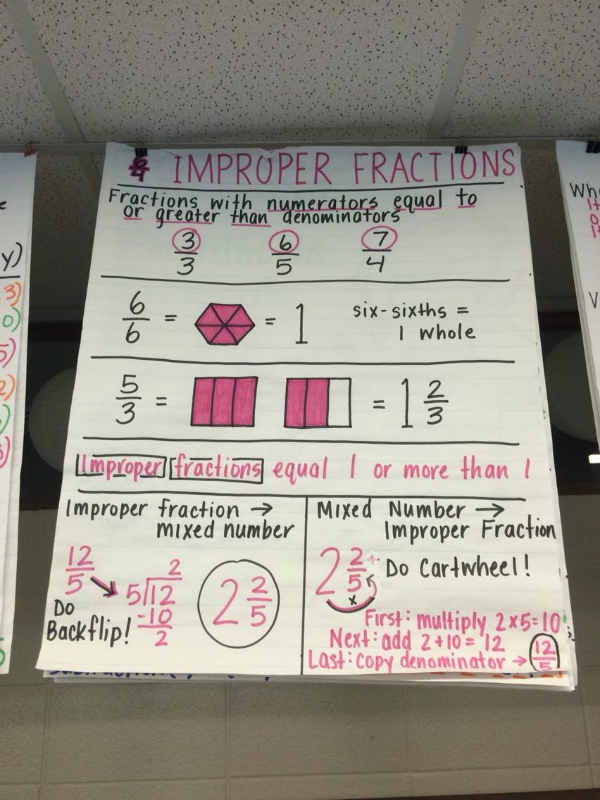 IMPROPER FRACTIONS
Fractions with numerators equal to
or greater than denominators
3/3 6/5 7/4
6/6 = = 1 six-sixths =
1 whole
5/3 = = 1 2/3
Improper fractions equal 1 or more than 1
Improper fraction →
mixed number
12/5
2
5)12
-10
2
2 2/5
Do
Backflip!
Mixed Number →
Improper Fraction
2 2/5 + x
Do Cartwheel!
First: multiply 2x5=10
Next: add 2+10= 12
Last: copy denominator → 12/5
y)